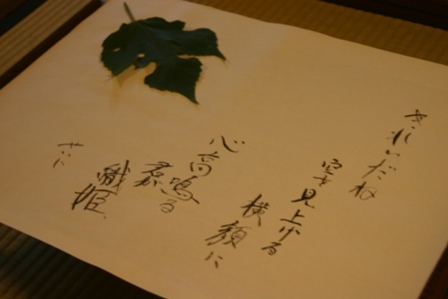 きれいだね
空を見上げる
横顔に
心高鳴る
君
織姫